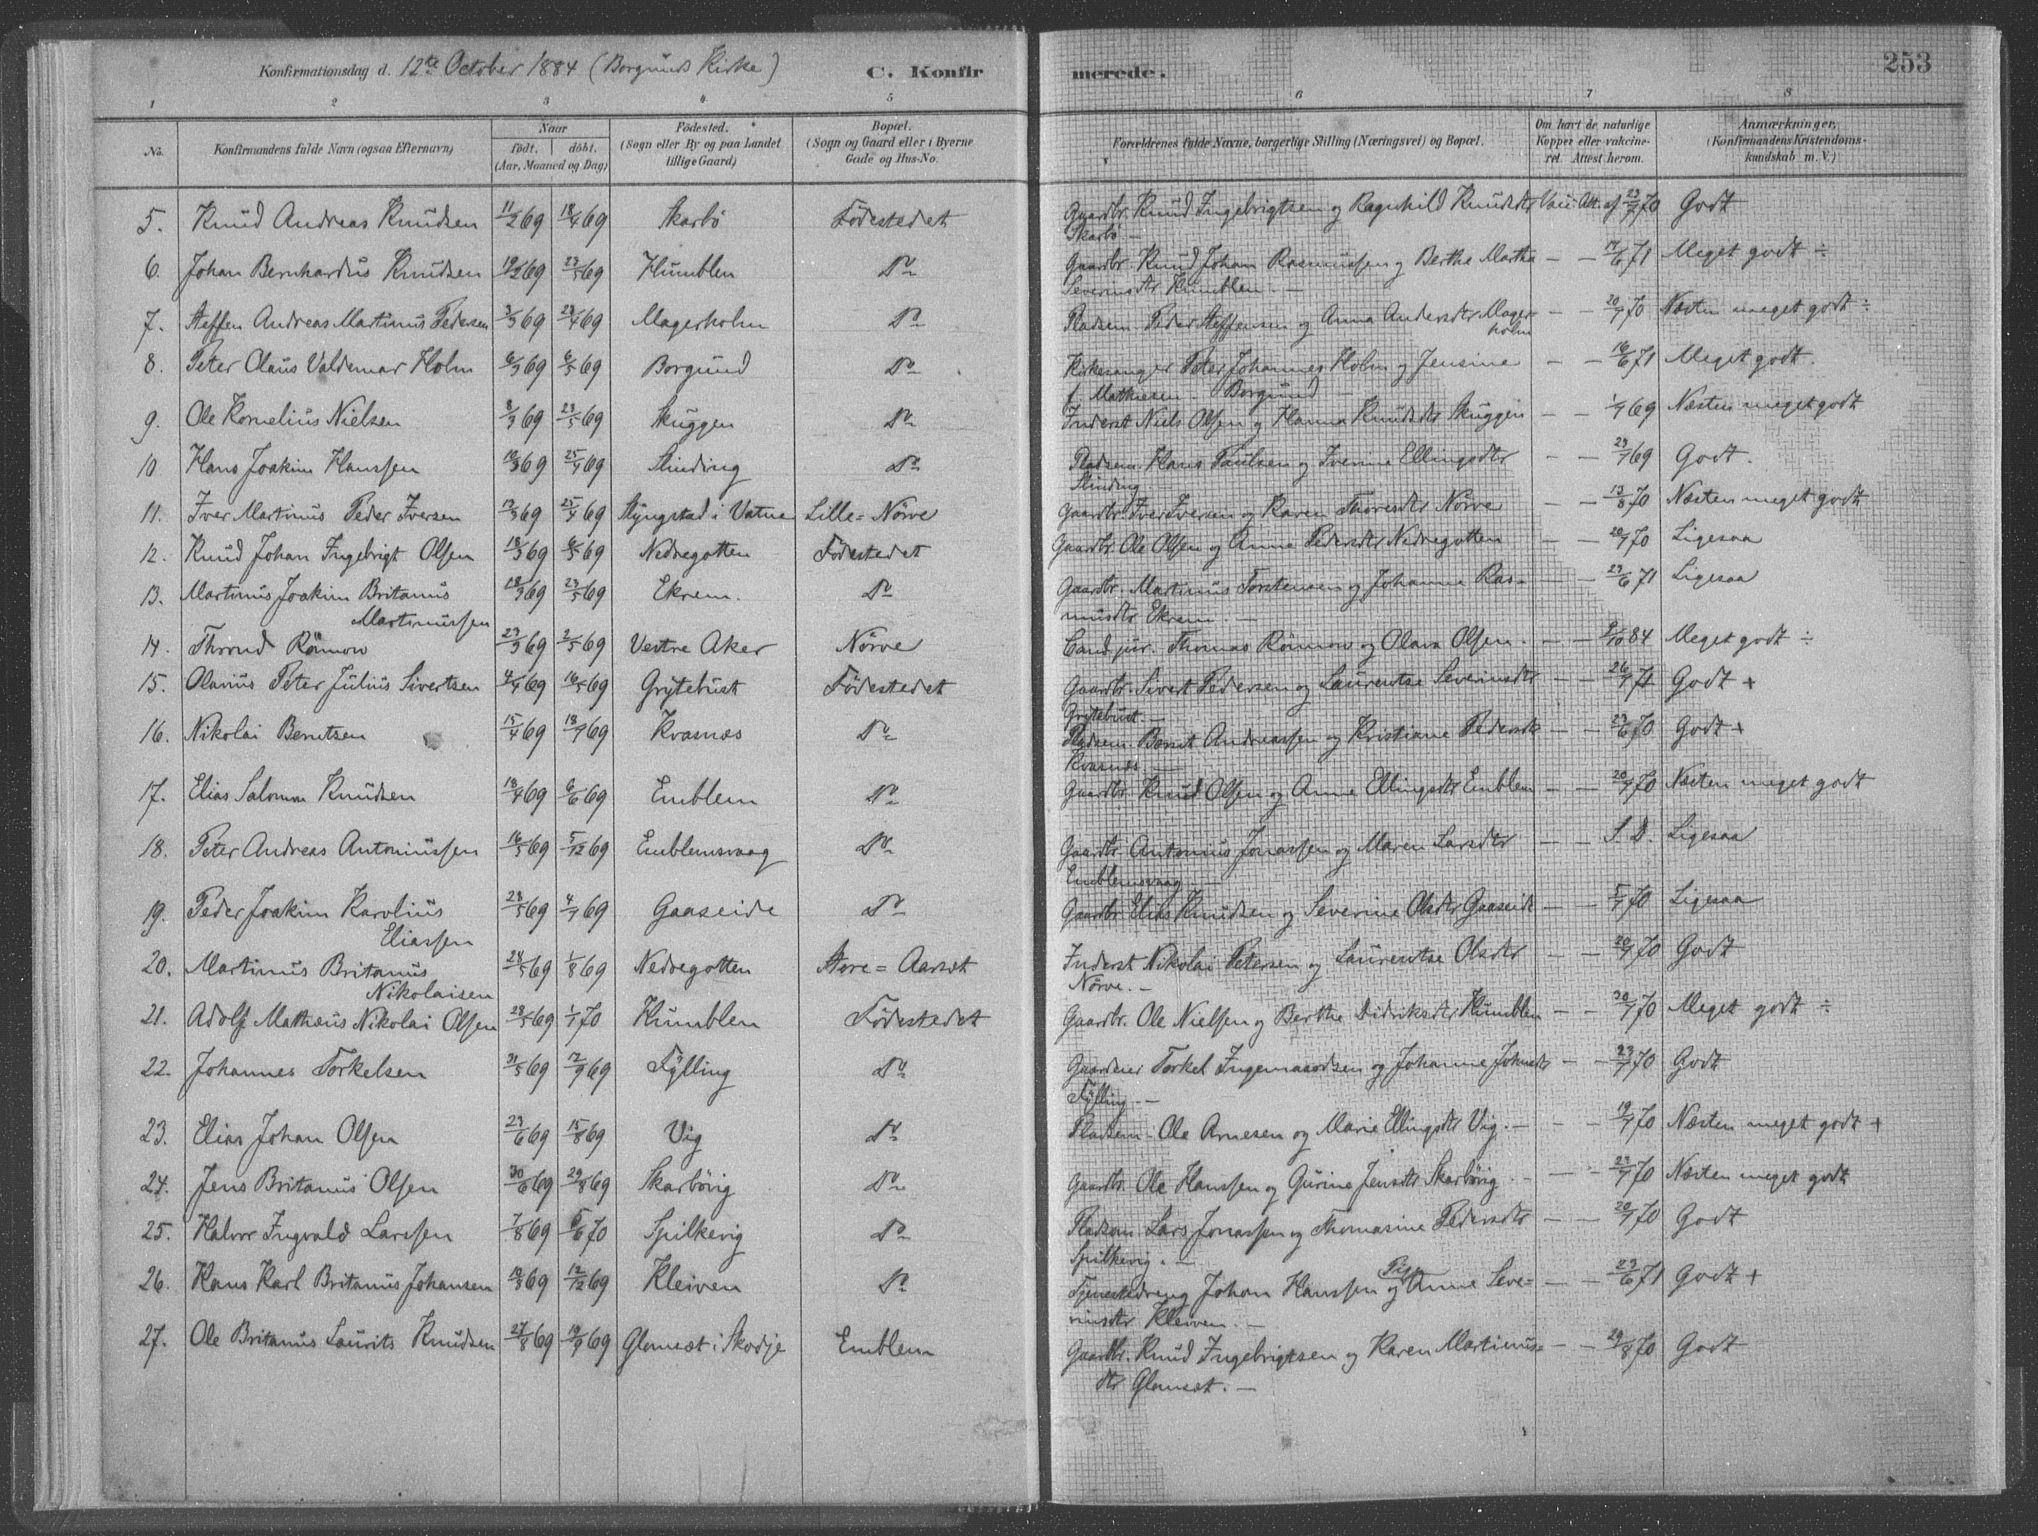 Konfirmationsdag d. 12te October 1884 (Borgunds Kirke) C. Konfirmerede. 253
1 2 3 4 5 6 7 8
No. Konfirmandens fulde Navn (ogsaa Efternavn) Naar födt. döbt. (Aar, Maaned og Dag) Födested. (Sogn eller By og paa Landet tillige Gaard) Bopæl. (Sogn og Gaard eller i Byerne Gade og Hus-No. Forældrenes fulde Navne, borgerlige Stilling (Næringsvei) og Bopæl. Om havt de naturlige Kopper eller vakcineret. Attest herom. Anmærkninger. (Konfirmandens Kristendomskundskab m. V.)
5. Knud Andreas Knudsen 11/2 69 18/4 69 Skarbö Födestedet Gaardbr. Knud Ingebrigtsen og Ragnhild Knudsdtr Vacc. Att. af 23/7 70 Godt
Skarbö —
6. Johan Bernhardus Knudsen 19/2 69 23/5 69 Humblen Do Gaardbr. Knud Johan Rasmussen og Berthe Martha — — 17/6 71 Meget godt ÷
Severinsdtr Humblen. —
7. Steffen Andreas Martinus Pedersen 3/3 69 28/4 69 Magerholm Do Pladsm. Peder Steffensen og Anna Andersdtr Magerholm — — 20/7 70 Næsten meget godt ÷
8. Peter Claus Valdemar Holm 6/3 69 6/5 69 Borgund Do Kirkesanger Peter Johannes Holm og Jensine — — 16/6 71 Meget godt.
f. Mathiesen — Borgund —
9. Ole Kornelius Nielsen 8/3 69 23/5 69 Skuggen Do Inderst Niels Olsen og Hanna Knudsdtr Skuggen — — 1/7 69 Næsten meget godt
10 Hans Joakim Hanssen 10/3 69 25/4 69 Slinding Do Pladsm. Hans Paulsen og Iverine Ellingsdtr — — 23/7 69 Godt.
Slinding. —
11. Iver Martinus Peder Iversen 13/3 69 25/4 69 Slyngstad i Vatne Lille=Nörve Gaardbr. Iver Iversen og Karen Thoresdtr Nörve — 13/8 70 Næsten meget godt
12. Knud Johan Ingebrigt Olsen 18/3 69 6/5 69 Nedregotten Födestedet Gaardbr. Ole Olsen og Anne Pedersdtr Nedregotten — — 20/7 70 Ligesaa
13. Martinus Joakim Britanus Martinussen 18/3 69 23/5 69 Ekrem. Do Gaardbr. Martinus Torstensen og Johanne Ras= — — 23/6 71 Ligesaa
musdtr Ekrem. —
14. Thrond Rönnow 23/3 69 2/5 69 Vestre Aker Nörve Cand. jur. Thomas Rönnow og Olava Olsen. — — 9/10 84 Meget godt ÷
15. Olavius Peter Julius Sivertsen 4/4 69 16/5 69 Grytebust Födestedet Gaardbr. Sivert Pedersen og Laurentse Severinsdtr — — 26/7 71 Godt +
Grytebust. —
16. Nikolai Berntsen 15/4 69 18/7 69 Kvasnæs Do Pladsm. Bernt Andreassen og Kristiane Pedersdtr — — 23/6 70 Godt +
Kvasnæs —
17. Elias Salomon Knudsen 18/4 69 6/6 69 Emblem Do Gaardbr. Knud Olsen og Anne Ellingsdtr Emblem — — 20/7 70 Næsten meget godt
18. Peter Andreas Antoniussen 16/5 69 5/12 69 Emblemsvaag Do Gaardbr. Antonius Jonassen og Maren Larsdtr — — S. D. Ligesaa
Emblemsvaag —
19. Peder Joakim Karolius Eliassen 23/5 69 4/7 69 Gaaseide Do Gaardbr. Elias Knudsen og Severine Olsdtr Gaaseide — — 5/7 70 Ligesaa
20. Martinus Britanus Nikolaisen 28/5 69 1/8 69 Nedregotten Store=Aarset Inderst Nikolai Petersen og Laurentse Olsdtr — — 20/7 70 Godt
Nörve. —
21. Adolf Mathæus Nikolai Olsen 28/5 69 1/7 70 Humblen Födestedet Gaardbr. Ole Nielsen og Berthe Didriksdtr Humblen — — 20/7 70 Meget godt ÷
22. Johannes Torkelsen 31/5 69 12/9 69 Fylling Do Gaardeier Torkel Ingemaardsen og Johanne Johnsdtr — — 23/7 70 Godt
Fylling. —
23. Elias Johan Olsen 23/6 69 15/8 69 Vig Do Pladsem. Ole Arnesen og Marie Ellingsdtr Vig. — — — 19/7 70 Næsten meget godt +
24. Jens Britanus Olsen 30/6 69 29/8 69 Skarbövig Do Gaardbr. Ole Hanssen og Gurine Jensdtr Skarbövig. — — 23/7 70 Næsten meget godt
25. Halvor Ingvald Larssen 7/8 69 5/6 70 Spilkevig Do Pladsm. Lars Jonassen og Thomasine Pedersdtr — — 20/7 70 Godt
Spilkevig. —
26. Hans Karl Britanus Johansen 10/8 69 12/12 69 Kleiven Do Tjenestedreng Johan Hanssen og Pige Anne Seve= — — 23/6 71 Godt +
rinsdtr Kleiven. —
27. Ole Britanus Laurits Knudsen 27/8 69 19/9 69 Glomset i Skodje Emblem Gaardbr. Knud Ingebrigtsen og Karen Martinus= — — 29/8 70 Godt
dtr Glomset. —